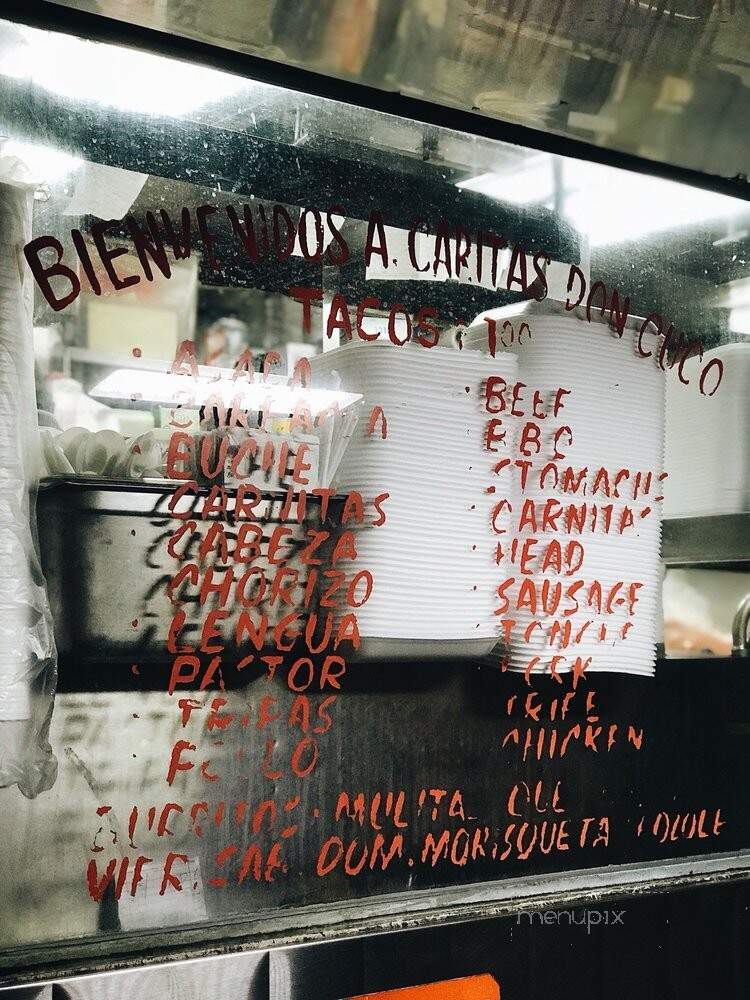 BIENVENIDOS A. CARITAS DON CUCO
TACOS 1.00
ASADA BEEF
BARBACOA BBQ
BUCHE STOMACH
CARNITAS CARNITAS
CABEZA HEAD
CHORIZO SAUSAGE
LENGUA TONGUE
PASTOR PORK
TRIPAS TRIPE
POLLO CHICKEN
BURRITOS. MULITA
VIER. SAB. DOM. MORISQUETA POZOLE
menupix